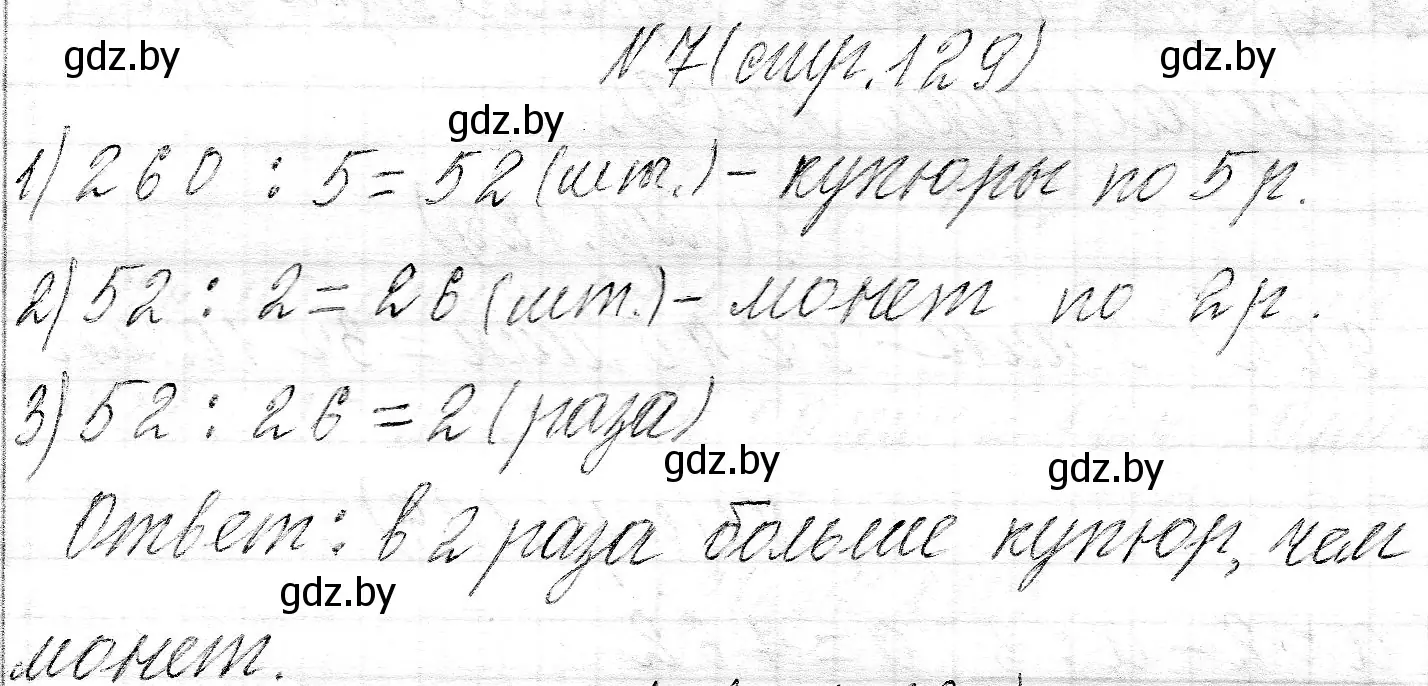 gdz.by
№ 7 (стр. 129)
gdz.by
gdz.by
1) 260 : 5 = 52 (шт.) - купюры по 5 р.
2) 52 : 2 = 26 (шт.) - монет по 2 р.
3) 52 : 26 = 2 (раза)
gdz.by
gdz.by
Ответ: в 2 раза больше купюр, чем
gdz.by
монет.